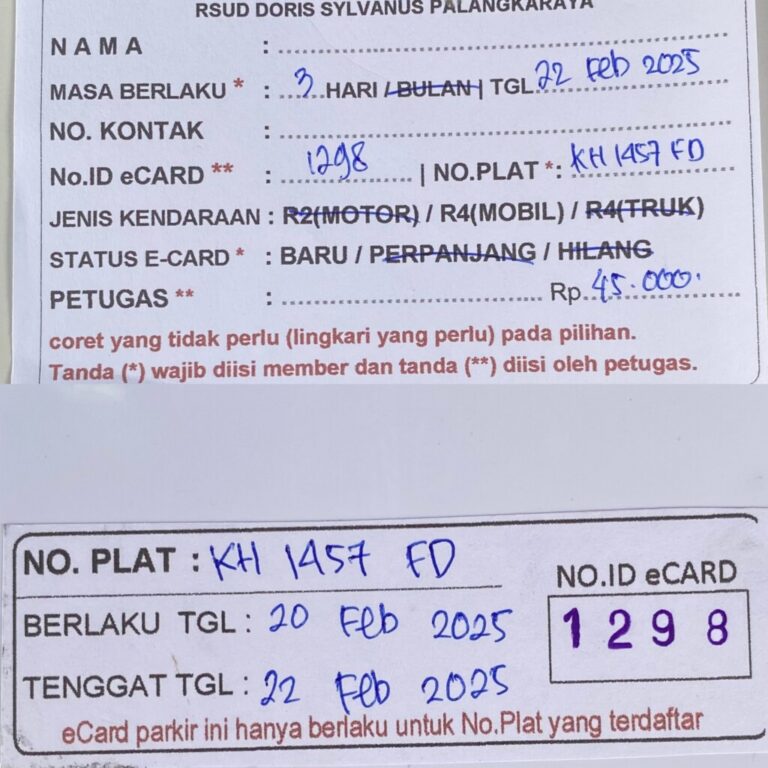 RSUD DORIS SYLVANUS PALANGKARAYA
NAMA : ........................................
MASA BERLAKU * : ...3...HARI / BULAN | TGL..22 Feb 2025
NO. KONTAK : ........................................
No.ID eCARD ** : ....1298.... | NO.PLAT *: KH 1457 FD
JENIS KENDARAAN : R2(MOTOR) / R4(MOBIL) / R4(TRUK)
STATUS E-CARD * : BARU / PERPANJANG / HILANG
PETUGAS ** : ........................ Rp..45.000.
coret yang tidak perlu (lingkari yang perlu) pada pilihan.
Tanda (*) wajib diisi member dan tanda (**) diisi oleh petugas.
NO. PLAT : KH 1457 FD
NO.ID eCARD
BERLAKU TGL : 20 Feb 2025
1298
TENGGAT TGL : 22 Feb 2025
eCard parkir ini hanya berlaku untuk No.Plat yang terdaftar